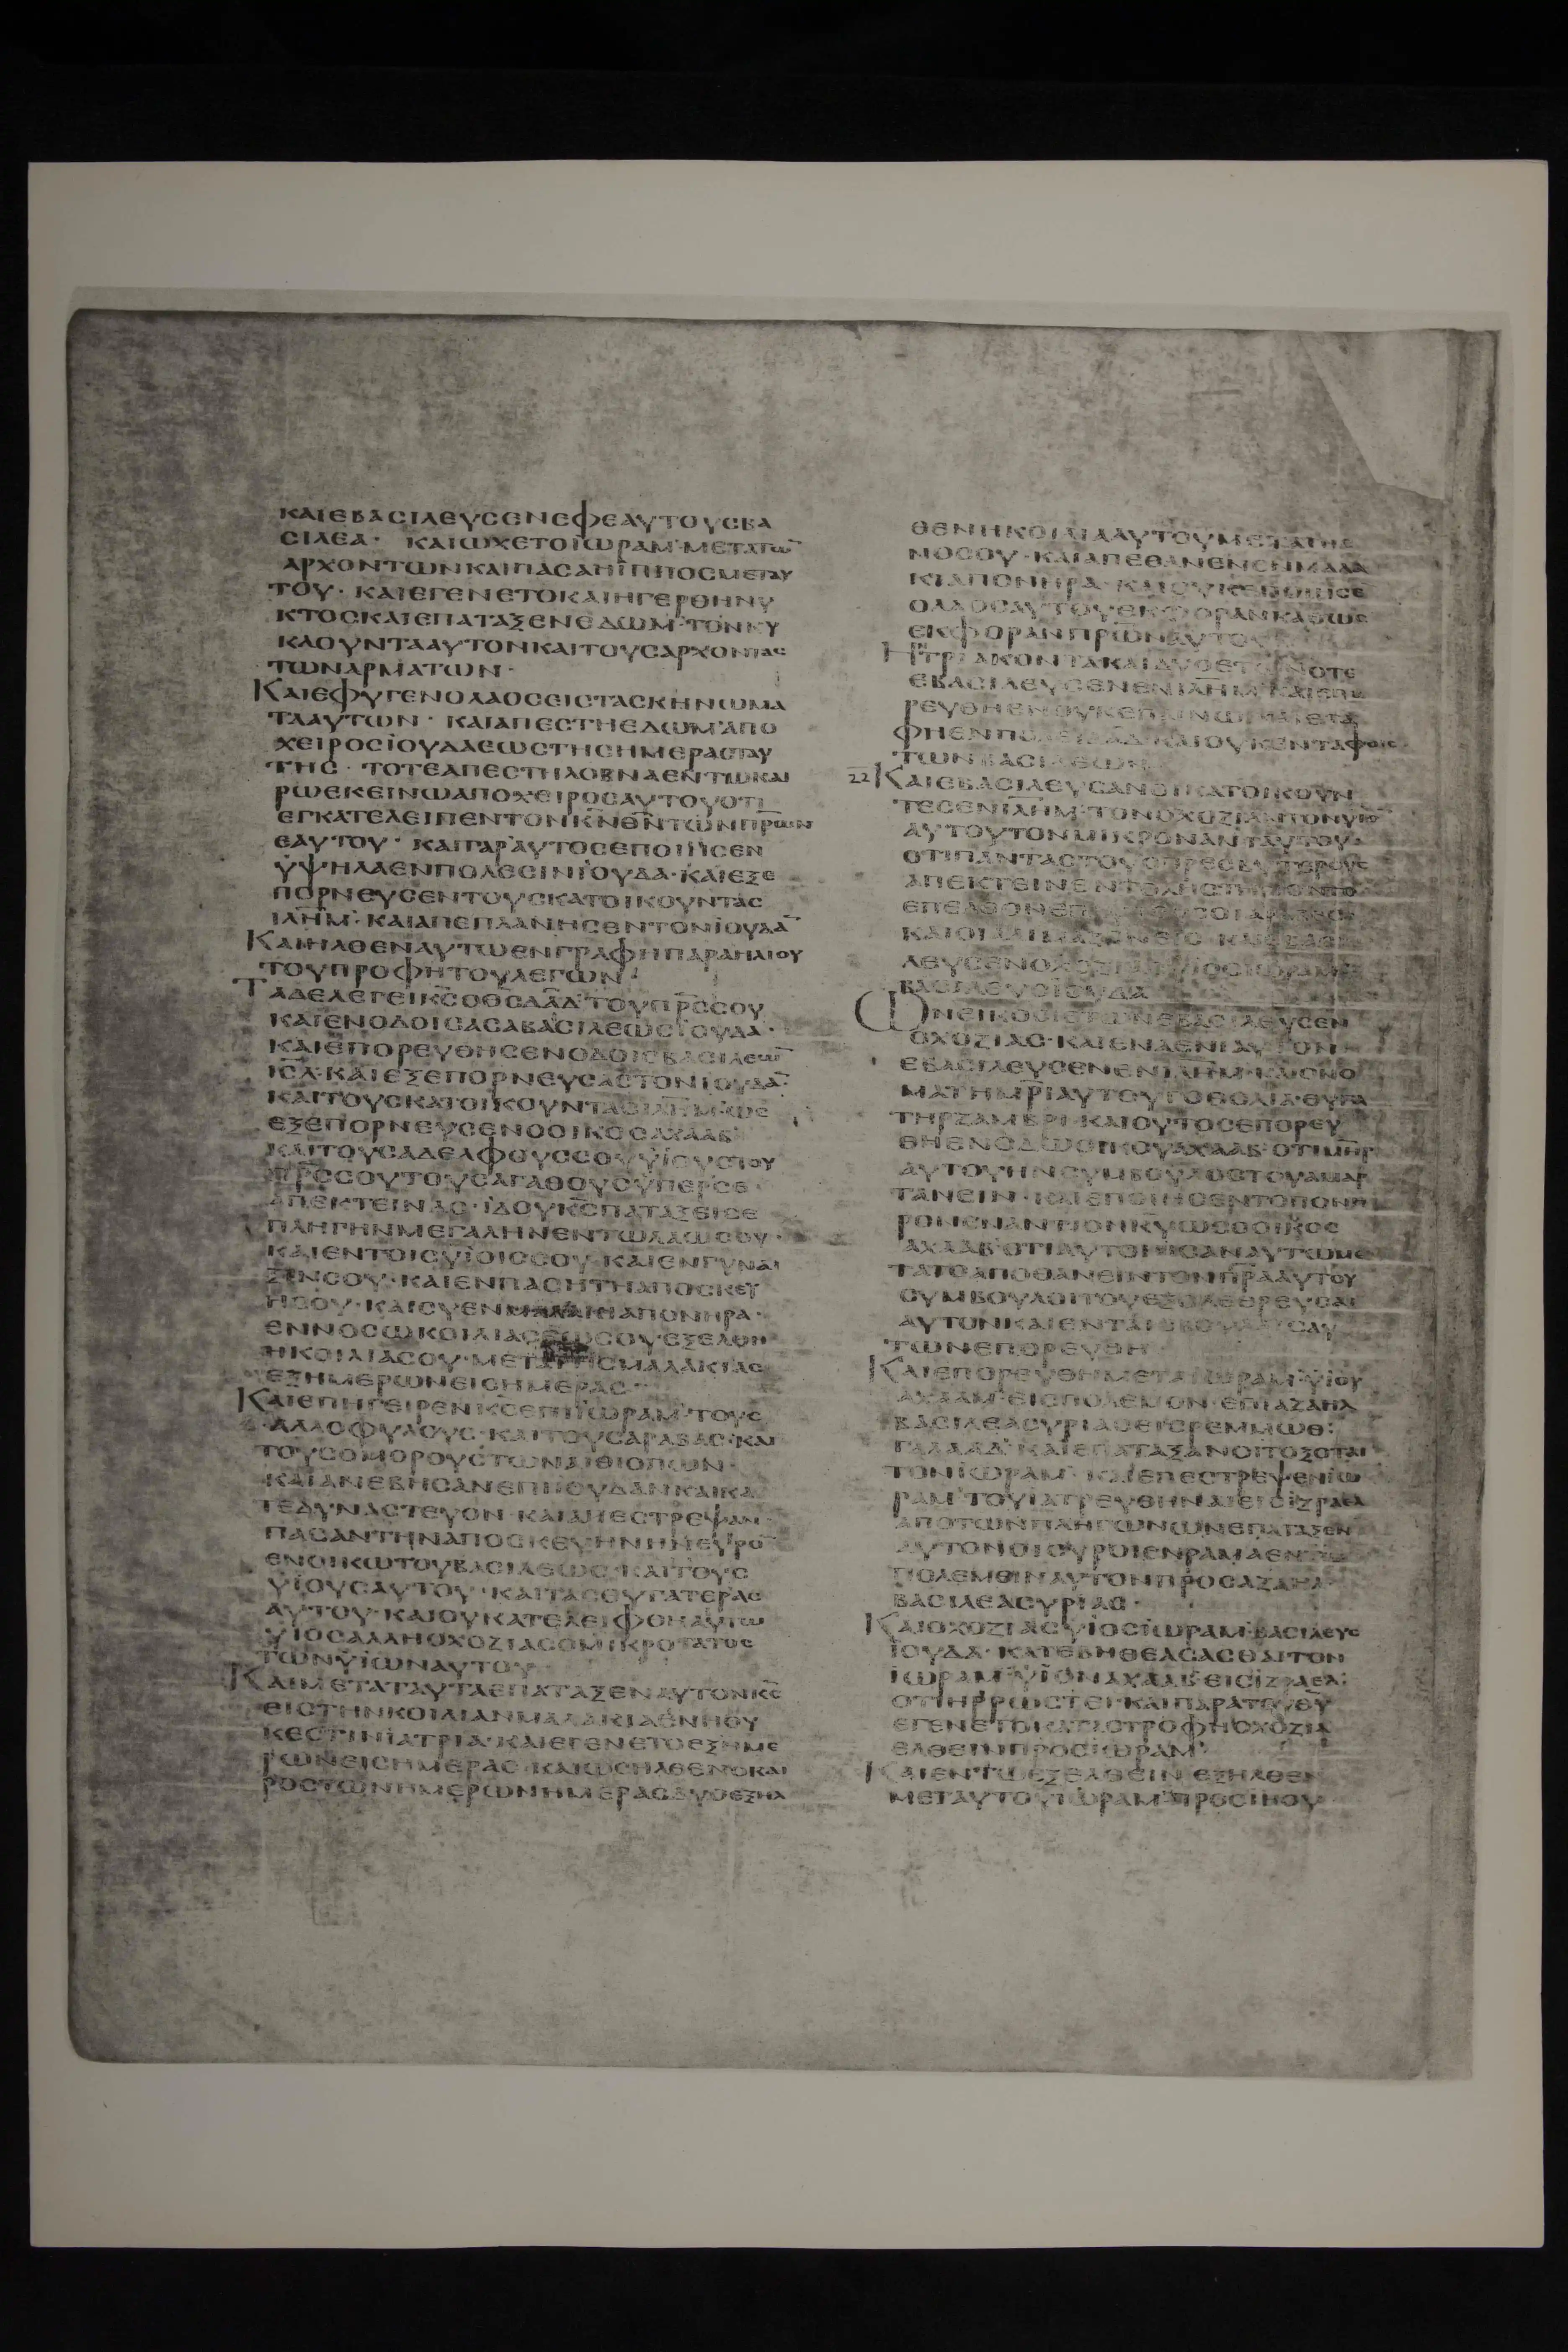 ΚΑΙΕΒΑCΙΛΕΥCΕΝΕΦΕΑΥΤΟΥCΒΑ
CΙΛΕΑ· ΚΑΙΩΧΕΤΟΪΩΡΑΜ·ΜΕΤΑΤΩ̅
ΑΡΧΟΝΤΩΝΚΑΙΠΑCΑΗΪΠΠΟCΜΕΤΑΥ
ΤΟΥ· ΚΑΙΕΓΕΝΕΤΟΚΑΙΗΓΕΡΘΗΝΥ
ΚΤΟCΚΑΙΕΠΑΤΑΞΕΝΕΔΩΜ·ΤΟΝΚΥ
ΚΛΟΥΝΤΑΑΥΤΟΝΚΑΙΤΟΥCΑΡΧΟΝΤΑC
ΤΩΝΑΡΜΑΤΩΝ·
ΚΑΙΕΦΥΓΕΝΟΛΑΟCΕΙCΤΑCΚΗΝΩΜΑ
ΤΑΑΥΤΩΝ· ΚΑΙΑΠΕCΤΗΕΔΩΜ·ΑΠΟ
ΧΕΙΡΟCΪΟΥΔΑΕΩCΤΗCΗΜΕΡΑCΤΑΥ
ΤΗC· ΤΟΤΕΑΠΕCΤΗΛΟΒΝΑΕΝΤΩΚΑΙ
ΡΩΕΚΕΙΝΩΑΠΟΧΕΙΡΟCΑΥΤΟΥΟΤΙ
ΕΓΚΑΤΕΛΕΙΠΕΝΤΟΝΚ̅Ν̅Θ̅Ν̅ΤΩΝΠ̅Ρ̅Ω̅Ν̅
ΕΑΥΤΟΥ· ΚΑΙΓΑΡΑΥΤΟCΕΠΟΙΗCΕΝ
ΫΨΗΛΑΕΝΠΟΛΕCΙΝΪΟΥΔΑ·ΚΑΙΕΞΕ
ΠΟΡΝΕΥCΕΝΤΟΥCΚΑΤΟΙΚΟΥΝΤΑC
Ι̅Λ̅Η̅Μ̅·ΚΑΙΑΠΕΠΛΑΝΗCΕΝΤΟΝΪΟΥΔΑ̅
ΚΑΙΗΛΘΕΝΑΥΤΩΕΝΓΡΑΦΗΠΑΡΑΗΛΙΟΥ
ΤΟΥΠΡΟΦΗΤΟΥΛΕΓΩΝ·
ΤΑΔΕΛΕΓΕΙΚ̅C̅Ο̅Θ̅C̅Δ̅Α̅Δ̅ΤΟΥΠ̅Ρ̅C̅CΟΥ
ΚΑΙΕΝΟΔΟΙCΑCΑΒΑCΙΛΕΩCΪΟΥΔΑ·
ΚΑΙΕΠΟΡΕΥΘΗCΕΝΟΔΟΙCΒΑCΙΛΕΩ̅
Ι̅C̅Λ̅·ΚΑΙΕΞΕΠΟΡΝΕΥCΑCΤΟΝΪΟΥΔΑ̅·
ΚΑΙΤΟΥCΚΑΤΟΙΚΟΥΝΤΑCΙ̅Λ̅Η̅Μ̅·ΩC
ΕΞΕΠΟΡΝΕΥCΕΝΟΟΙΚΟCΑΧΑΑΒ
ΚΑΙΤΟΥCΑΔΕΛΦΟΥCCΟΥΫΪΟΥCΤΟΥ
Π̅Ρ̅C̅CΟΥΤΟΥCΑΓΑΘΟΥCΫΠΕΡCΕ
ΑΠΕΚΤΕΙΝΑC·ΪΔΟΥΚ̅C̅ΠΑΤΑΞΕΙCΕ
ΠΛΗΓΗΝΜΕΓΑΛΗΝΕΝΤΩΛΑΩCΟΥ·
ΚΑΙΕΝΤΟΙCΫΪΟΙCCΟΥ·ΚΑΙΕΝΓΥΝΑΙ
ΞΙΝCΟΥ·ΚΑΙΕΝΠΑCΗΤΗΑΠΟCΚΕΥ
ΗCΟΥ·ΚΑΙCΥΕΝΜΑΛΑΚΙΑΠΟΝΗΡΑ·
ΕΝΝΟCΩΚΟΙΛΙΑCΕΩCΟΥΕΞΕΛΘΗ
ΗΚΟΙΛΙΑCΟΥ·ΜΕΤΑΤΗCΜΑΛΑΚΙΑC
ΕΞΗΜΕΡΩΝΕΙCΗΜΕΡΑC·
ΚΑΙΕΠΗΓΕΙΡΕΝΚ̅C̅ΕΠΙΪΩΡΑΜ·ΤΟΥC
ΑΛΛΟΦΥΛΟΥC·ΚΑΙΤΟΥCΑΡΑΒΑC·ΚΑΙ
ΤΟΥCΟΜΟΡΟΥCΤΩΝΑΙΘΙΟΠΩΝ·
ΚΑΙΑΝΕΒΗCΑΝΕΠΙΪΟΥΔΑΝΚΑΙΚΑ
ΤΕΔΥΝΑCΤΕΥΟΝ·ΚΑΙΑΠΕCΤΡΕΨΑΝ
ΠΑCΑΝΤΗΝΑΠΟCΚΕΥΗΝΗΝΕΥΡΟ̅
ΕΝΟΙΚΩΤΟΥΒΑCΙΛΕΩC·ΚΑΙΤΟΥC
ΫΪΟΥCΑΥΤΟΥ·ΚΑΙΤΑCΘΥΓΑΤΕΡΑC
ΑΥΤΟΥ·ΚΑΙΟΥΚΑΤΕΛΕΙΦΘΗΑΥΤΩ
ΫΙΟCΑΛΛΗΟΧΟΖΙΑCΟΜΙΚΡΟΤΑΤΟC
ΤΩΝΫΪΩΝΑΥΤΟΥ·
ΚΑΙΜΕΤΑΤΑΥΤΑΕΠΑΤΑΞΕΝΑΥΤΟΝΚ̅C̅
ΕΙCΤΗΝΚΟΙΛΙΑΝΜΑΛΑΚΙΑΕΝΗΟΥ
ΚΕCΤΙΝΪΑΤΡΙΑ·ΚΑΙΕΓΕΝΕΤΟΕΞΗΜΕ
ΡΩΝΕΙCΗΜΕΡΑC·ΚΑΙΩCΗΛΘΕΝΟΚΑΙ
ΡΟCΤΩΝΗΜΕΡΩΝΗΜΕΡΑCΔΥΟΕΞΗΛ
ΘΕΝΗΚΟΙΛΙΑΑΥΤΟΥΜΕΤΑΤΗC
ΝΟCΟΥ·ΚΑΙΑΠΕΘΑΝΕΝΕΝΜΑΛΑ
ΚΙΑΠΟΝΗΡΑ·ΚΑΙΟΥΚΕΠΟΙΗCΕ
ΟΛΑΟCΑΥΤΟΥΕΚΦΟΡΑΝΚΑΘΩC
ΕΚΦΟΡΑΝΠ̅Ρ̅Ω̅Ν̅ΑΥΤΟΥ
ΗΝΤΡΙΑΚΟΝΤΑΚΑΙΔΥΟΕΤΩΝΟΤΕ
ΕΒΑCΙΛΕΥCΕΝΕΝΙ̅Λ̅Η̅Μ̅·ΚΑΙΕΠΟ
ΡΕΥΘΗΕΝΟΥΚΕΠΑΙΝΩ·ΚΑΙΕΤΑ
ΦΗΕΝΠΟΛΕΙΔ̅Α̅Δ̅·ΚΑΙΟΥΚΕΝΤΑΦΟΙC
ΤΩΝΒΑCΙΛΕΩΝ
22 ΚΑΙΕΒΑCΙΛΕΥCΑΝΟΙΚΑΤΟΙΚΟΥΝ
ΤΕCΕΝΙ̅Λ̅Η̅Μ̅·ΤΟΝΟΧΟΖΙΑΝΤΟΝΥΙΟ̅
ΑΥΤΟΥΤΟΝΜΙΚΡΟΝΑΝΤΑΥΤΟΥ·
ΟΤΙΠΑΝΤΑCΤΟΥCΠΡΕCΒΥΤΕΡΟΥC
ΑΠΕΚΤΕΙΝΕΝ
ΛΕΥCΕΝΟΧΟΖΙΑCΥΙΟCΪΩΡΑΜ
ΒΑCΙΛΕΥCΪΟΥΔΑ
ΩΝΕΙΚΟCΙΕΤΩΝΕΒΑCΙΛΕΥCΕΝ
ΟΧΟΖΙΑC·ΚΑΙΕΝΑΕΝΙΑΥΤΟΝ
ΕΒΑCΙΛΕΥCΕΝΕΝΙ̅Λ̅Η̅Μ̅·ΚΑΙΟΝΟ
ΜΑΤΗΜ̅Ρ̅Ι̅ΑΥΤΟΥΓΟΘΟΛΙΑ·ΘΥΓΑ
ΤΗΡΖΑΜΒΡΙ·ΚΑΙΟΥΤΟCΕΠΟΡΕΥ
ΘΗΕΝΟΔΩΟΙΚΟΥΑΧΑΑΒ·ΟΤΙΜ̅Η̅Ρ̅
ΑΥΤΟΥΗΝCΥΜΒΟΥΛΟCΤΟΥΑΜΑΡ
ΤΑΝΕΙΝ·ΚΑΙΕΠΟΙΗCΕΝΤΟΠΟΝΗ
ΡΟΝΕΝΑΝΤΙΟΝΚ̅Υ̅ΩCΟΟΙΚΟC
ΑΧΑΑΒ·ΟΤΙΑΥΤΟΙΗCΑΝΑΥΤΩΜΕ
ΤΑΤΟΑΠΟΘΑΝΕΙΝΤΟΝΠ̅Ρ̅Α̅ΑΥΤΟΥ
CΥΜΒΟΥΛΟΙΤΟΥΕΞΟΛΕΘΡΕΥCΑΙ
ΑΥΤΟΝΚΑΙΕΝΤΑΙCΒΟΥΛΑΙCΑΥ
ΤΩΝΕΠΟΡΕΥΘΗ·
ΚΑΙΕΠΟΡΕΥΘΗΜΕΤΑΪΩΡΑΜ·ΫΪΟΥ
ΑΧΑΑΜ·ΕΙCΠΟΛΕΜΟΝ·ΕΠΙΑΖΑΗΛ
ΒΑCΙΛΕΑCΥΡΙΑCΕΙCΡΕΜΜΩΘ·
ΓΑΛΑΑΔ·ΚΑΙΕΠΑΤΑΞΑΝΟΙΤΟΞΟΤΑΙ
ΤΟΝΪΩΡΑΜ·ΚΑΙΕΠΕCΤΡΕΨΕΝΪΩ
ΡΑΜ·ΤΟΥΪΑΤΡΕΥΘΗΝΑΙΕΙCΪΖΡΑΕΛ
ΑΠΟΤΩΝΠΛΗΓΩΝΩΝΕΠΑΤΑΞΕΝ
ΑΥΤΟΝΟΙCΥΡΟΙΕΝΡΑΜΑΕΝΤΩ
ΠΟΛΕΜΕΙΝΑΥΤΟΝΠΡΟCΑΖΑΗΛ·
ΒΑCΙΛΕΑCΥΡΙΑC·
ΚΑΙΟΧΟΖΙΑCΫΪΟCΪΩΡΑΜ·ΒΑCΙΛΕΥC
ΪΟΥΔΑ·ΚΑΤΕΒΗΘΕΑCΑCΘΑΙΤΟΝ
ΪΩΡΑΜ·ΫΪΟΝΑΧΑΑΒ·ΕΙCΪΖΡΑΕΛ·
ΟΤΙΗΡΡΩCΤΕΙ·ΚΑΙΠΑΡΑΤΟΥΘ̅Υ̅
ΕΓΕΝΕΤΟΚΑΤΑCΤΡΟΦΗΟΧΟΖΙΑ
ΕΛΘΕΙΝΠΡΟCΪΩΡΑΜ·
ΚΑΙΕΝΤΩΕΞΕΛΘΕΙΝ·ΕΞΗΛΘΕΝ
ΜΕΤΑΥΤΟΥΪΩΡΑΜ·ΠΡΟCΙΗΟΥ